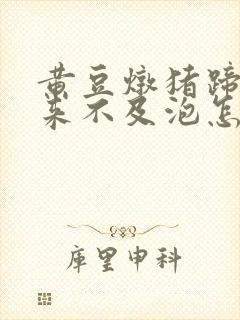 黄豆炖猪蹄
来不及泡怎
库里申科